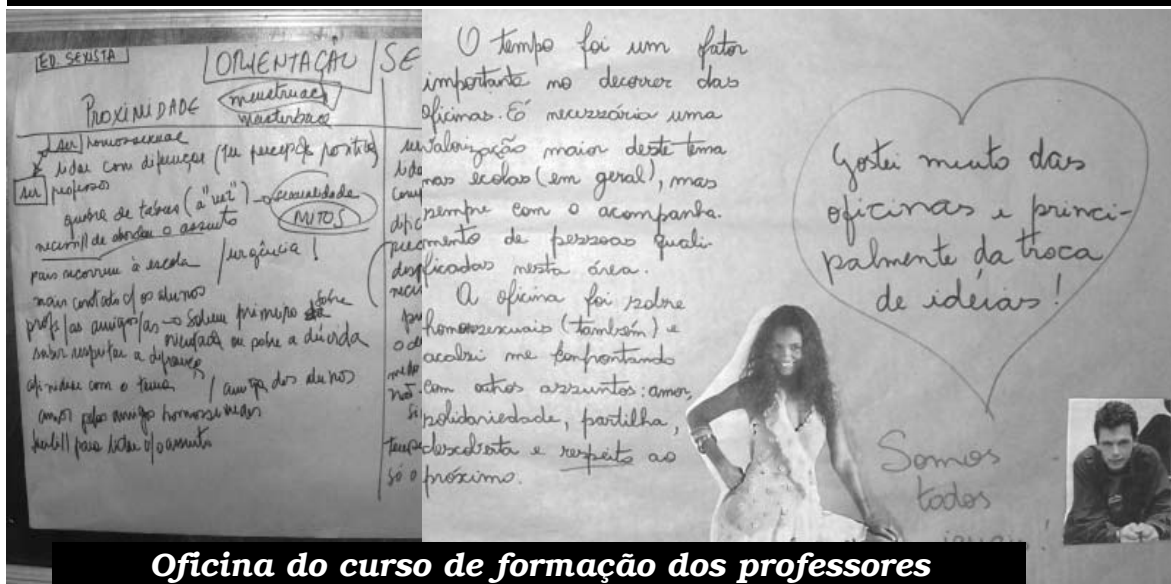 ED. SEXISTA
ORIENTAÇÃO SE
PROXIMIDADE
menstruação
masturbação
ser homossexual
lidar com diferenças (ter percepção positiva)
ser professor
quebra de tabus (à "vez") → sexualidade
MITOS
de abordar o assunto
pais recorrem à escola / urgência!
mais contato c/ os alunos
profs/as amigos/as → Sabem primeiro sobre
ou sobre a dúvida
saber respeitar a diferença
afinidade com o tema / amigo dos alunos
amor pelos amigos homossexuais
para lidar c/ o assunto
O tempo foi um fator
importante no decorrer das
oficinas. É necessária uma
valorização maior deste tema
nas ecolas (em geral), mas
sempre com o acompanha-
mento de pessoas quali-
ficadas nesta área.
A oficina foi sobre
homossexuais (também) e
acabei me confrontando
com outros assuntos: amor,
solidariedade, partilha,
descoberta e respeito ao
próximo.
Gostei muito das
oficinas e princi-
palmente da troca
de idéias!
Somos
todos
iguais!
Oficina do curso de formação dos professores